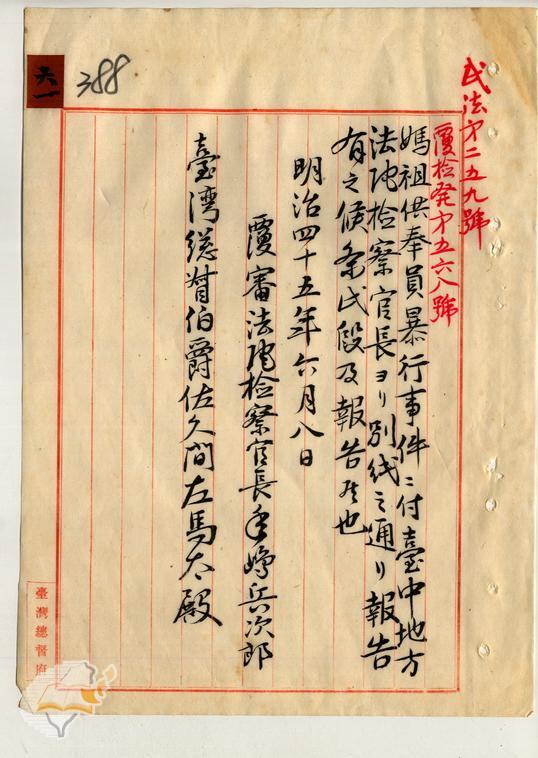 民法才二五九號
覆檢発才五六八號
媽祖供奉員暴行事件ニ付臺中地方
法院檢察官長ヨリ別紙之通リ報告
有之候条此段及報告候也
明治四十五年六月八日
覆審法院檢察官長手島兵次郎
臺湾総督伯爵佐久間左馬太殿
六一
388
臺灣總督府